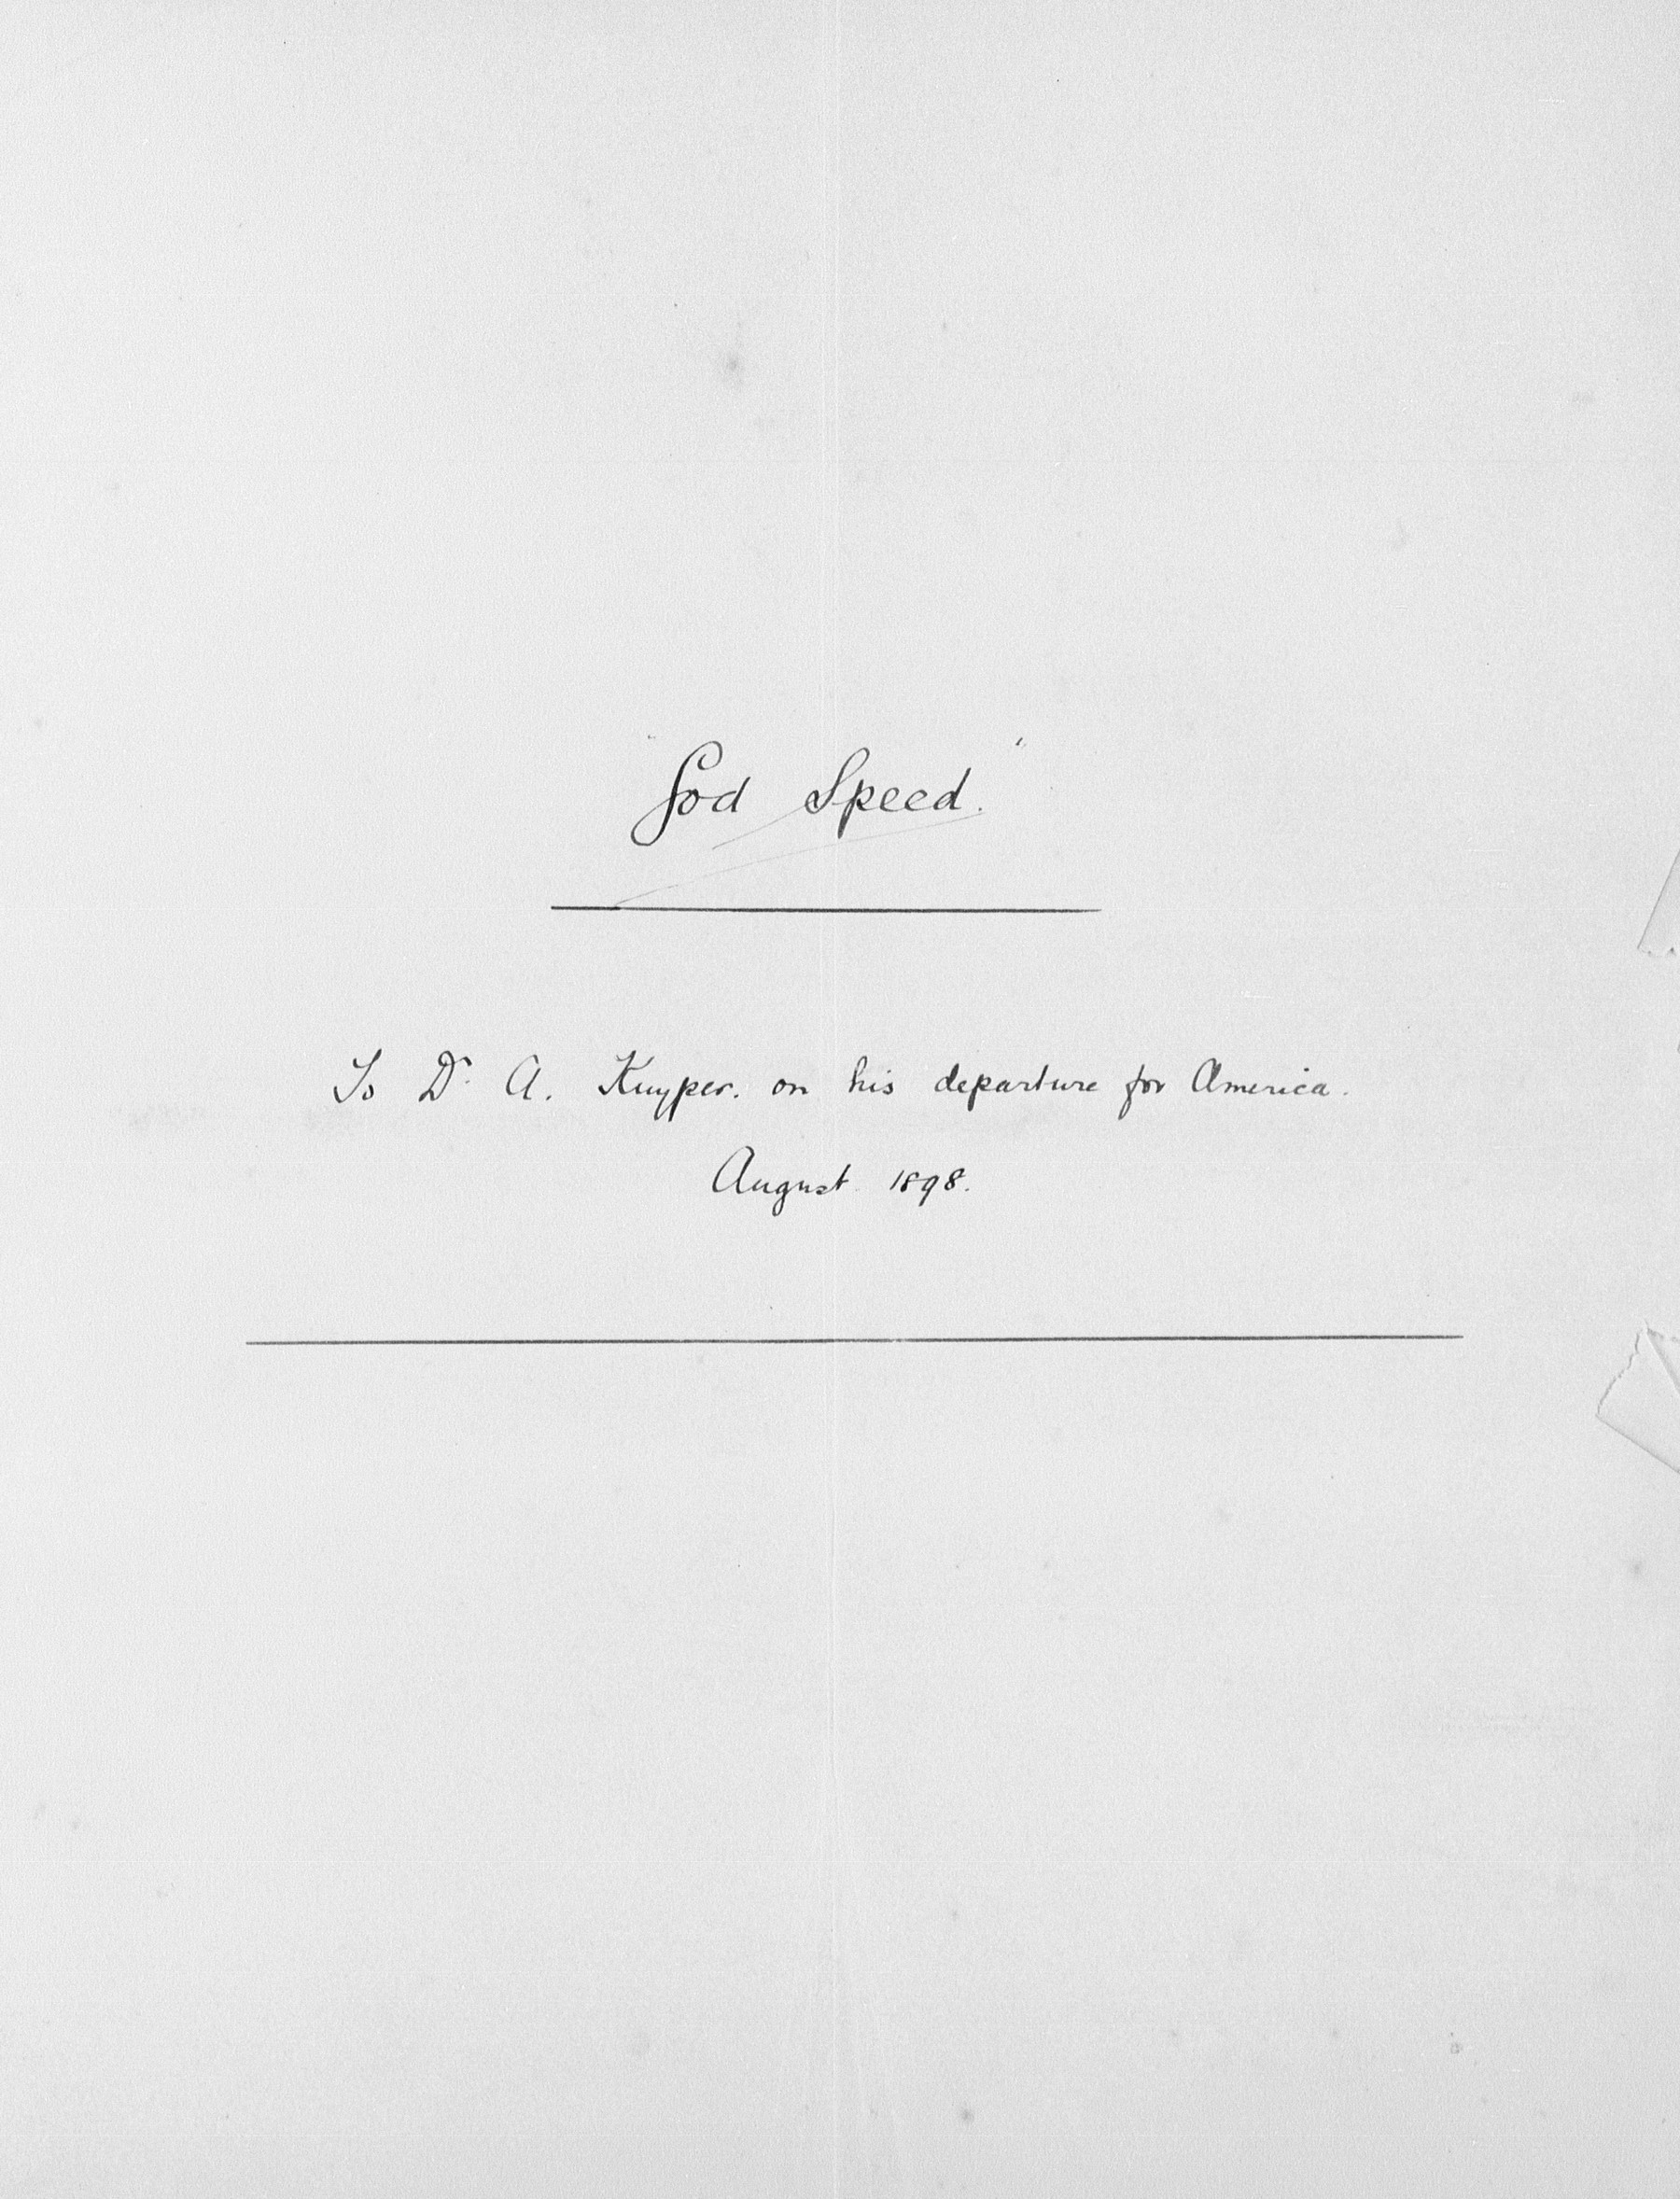 "God Speed."
To Dr. A. Kuyper. on his departure for America.
August 1898.